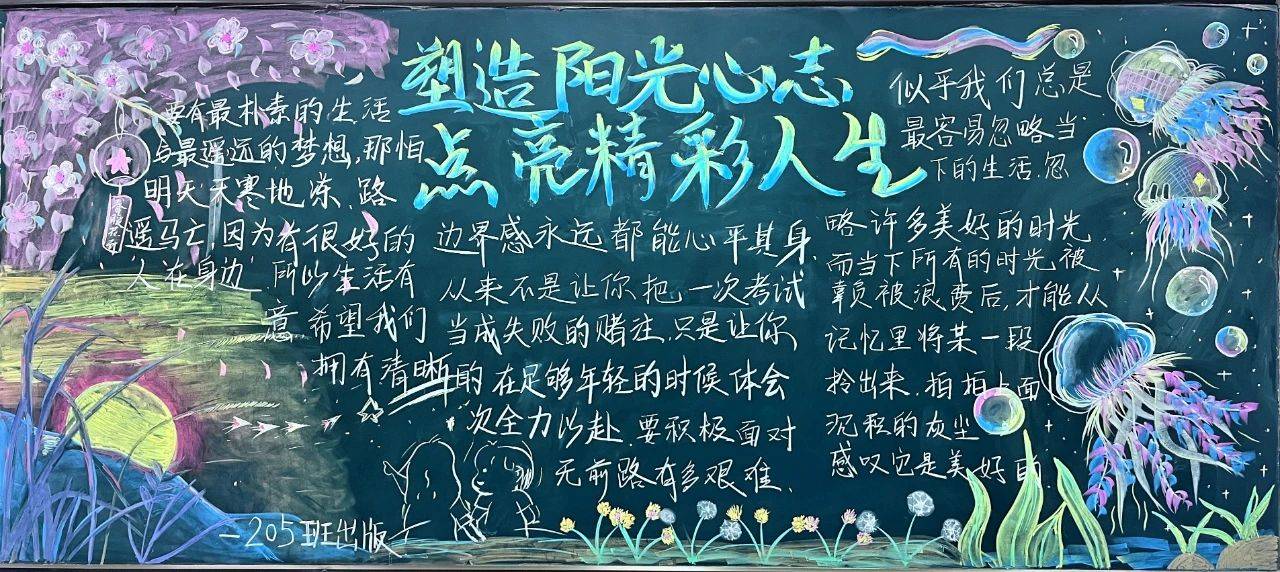 塑造阳光心志
点亮精彩人生
要有最朴素的生活
与最遥远的梦想,那怕
明天天寒地冻、路
遥马亡,因为有很好的
人在身边 所以生活有
意 希望我们
拥有清晰的
边界感永远都能心平其身
从来不是让你把一次考试
当成失败的赌注,只是让你
在足够年轻的时候体会
次全力以赴 要积极面对
无前路有多艰难、
似乎我们总是
最容易忽略当
下的生活,忽
略许多美好的时光
而当下所有的时光被
辜负被浪费后,才能从
记忆里将某一段
拎出来,拍拍上面
沉积的灰尘
感叹它是美好的
—205班出版